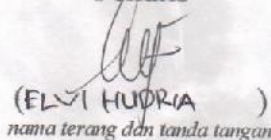 (ELVI HUDRIA )
nama terang dan tanda tangan